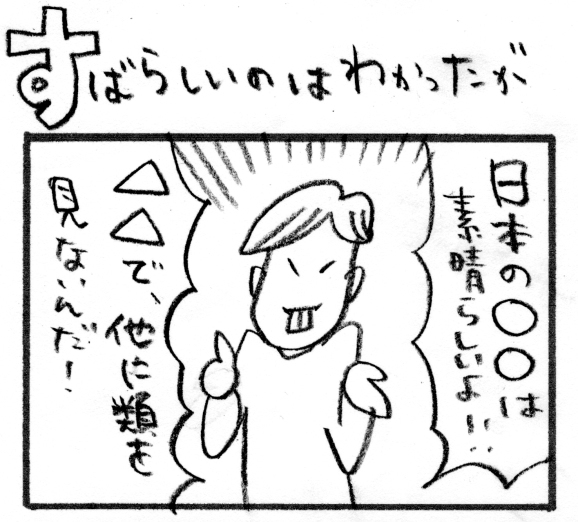 すばらしいのはわかったが
日本の〇〇は
素晴らしいよ!!
△△で、他に類を
見ないんだ!